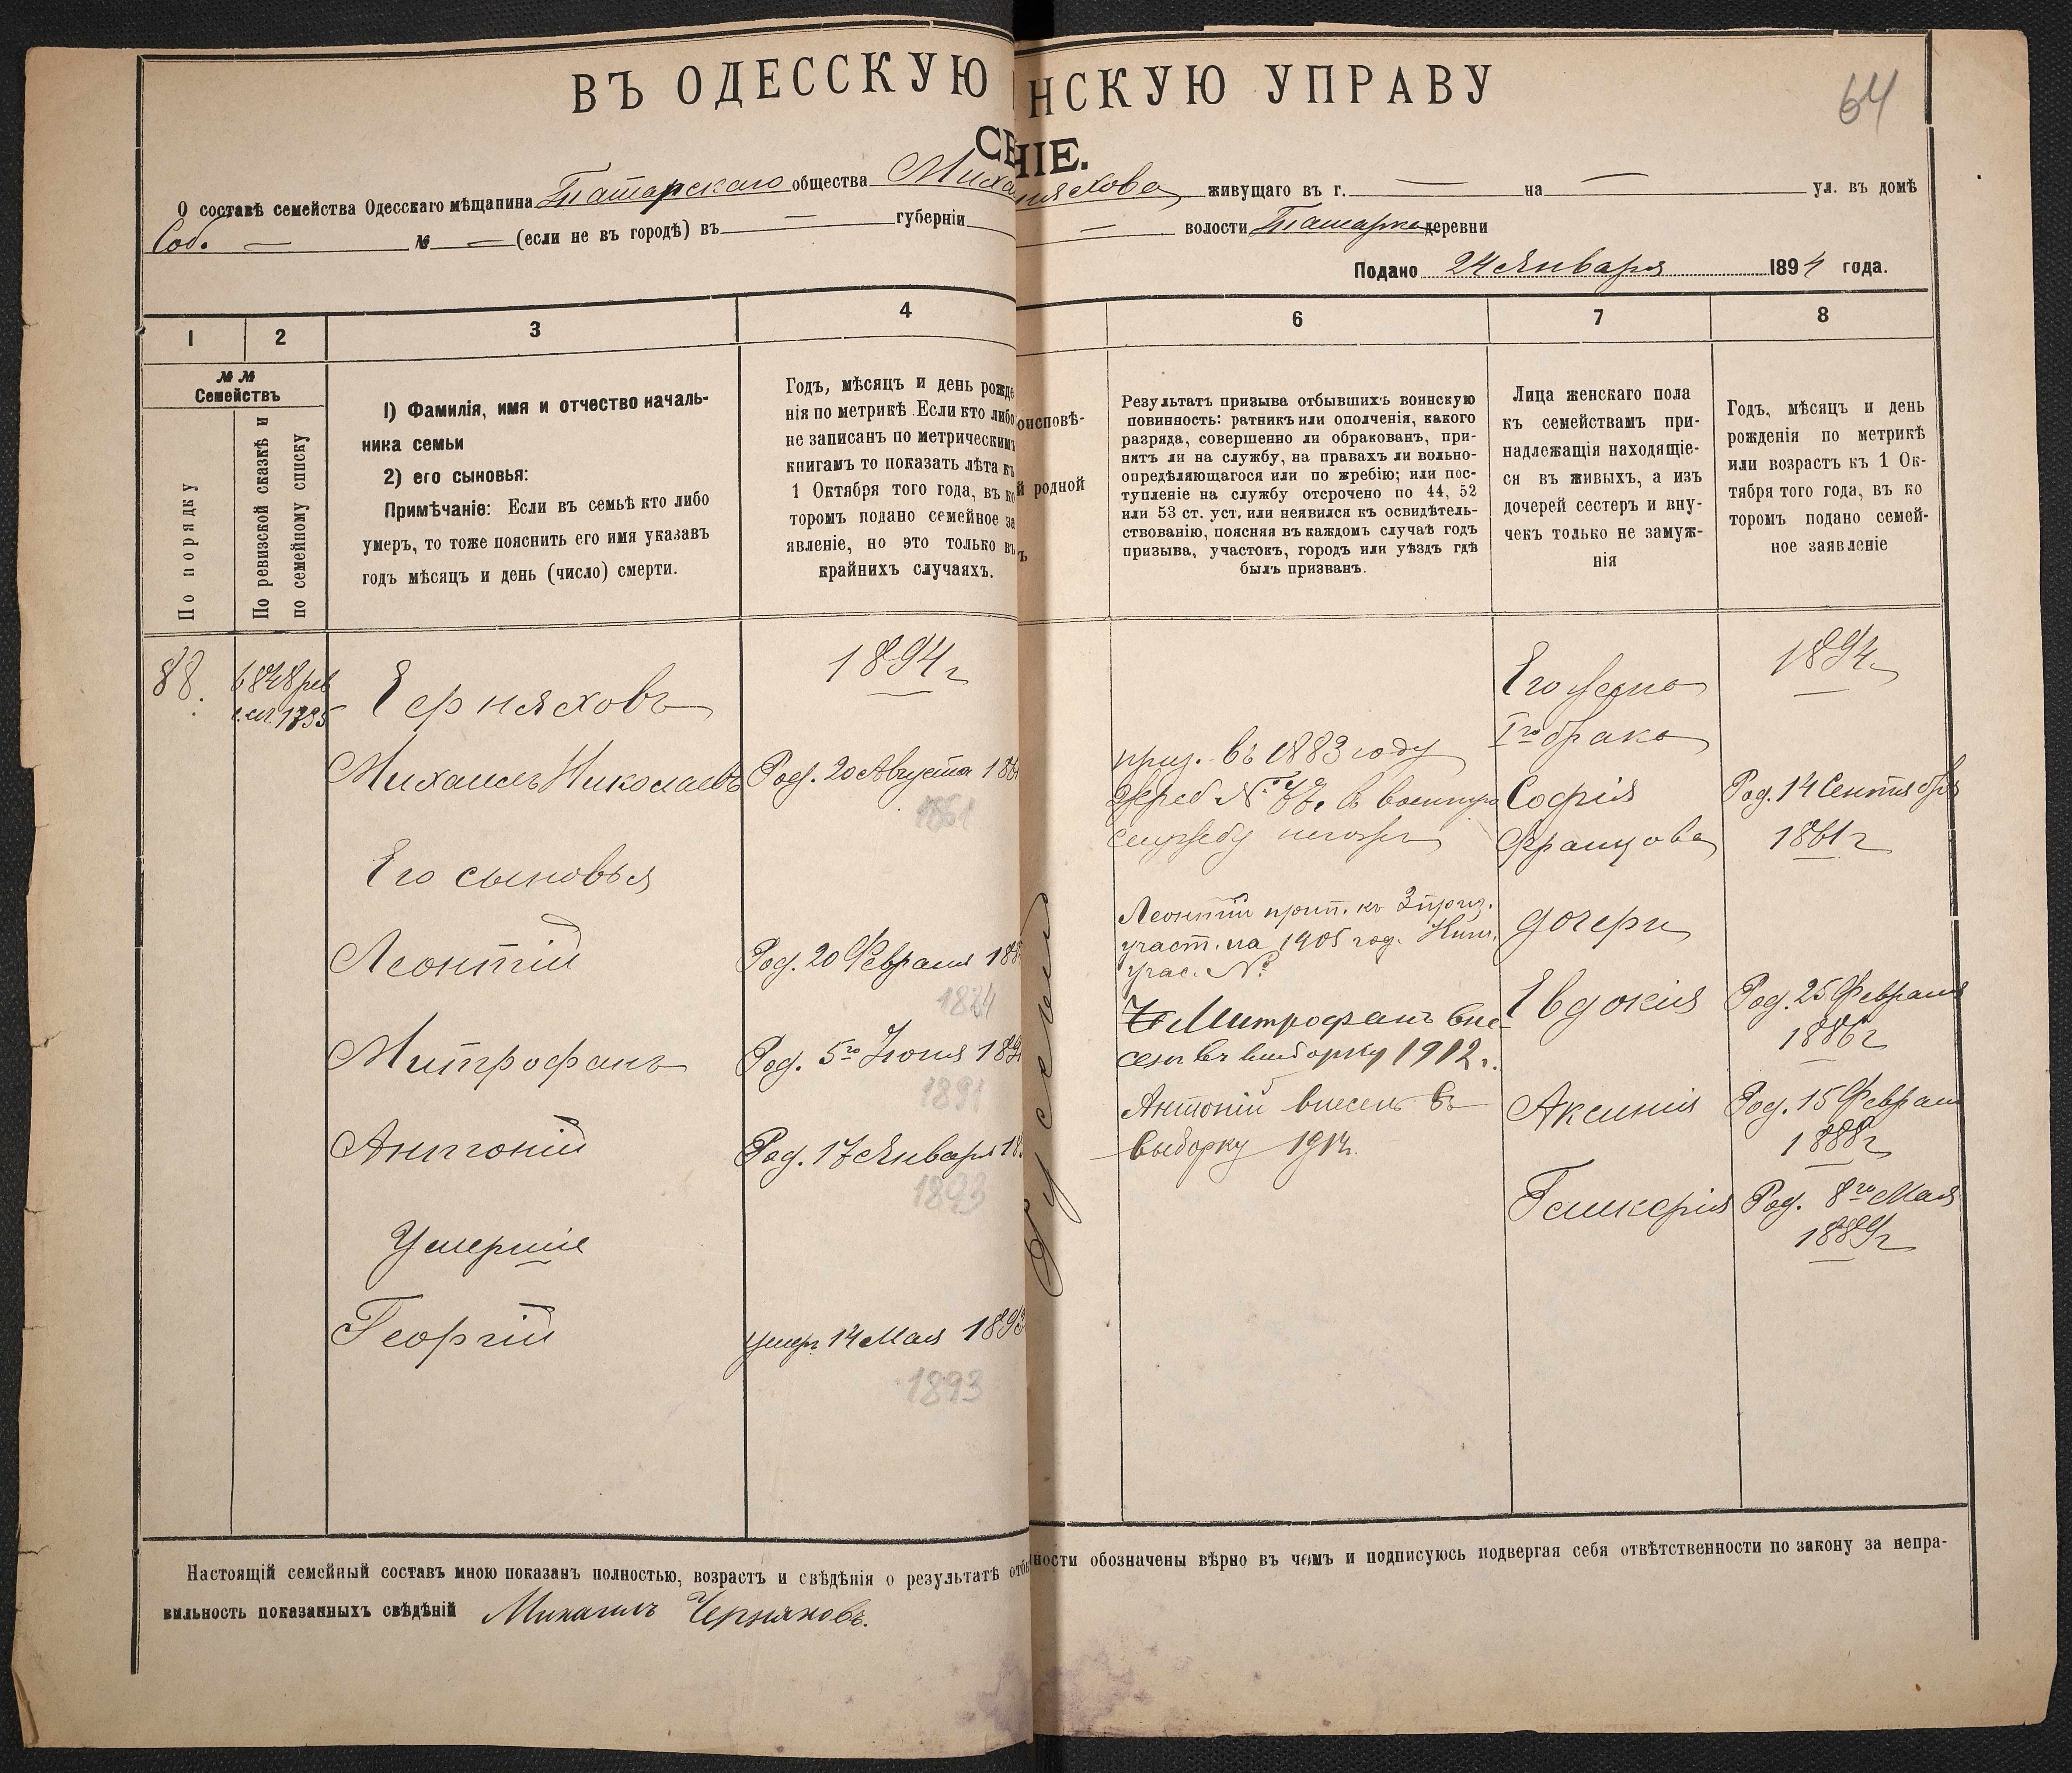 ВЪ ОДЕССКУЮ НСКУЮ УПРАВУ
64
СЕ НІЕ.
О составѣ семейства Одесскаго мѣщанина Татарскаго общества Миха няхова живущаго въ г. — на — ул. въ домѣ
Соб. — № — (если не въ городѣ) въ — губерніи — волости Татарка деревни
Подано 24 Января 1894 года.
1 2 3 4 6 7 8
№ №
Семействъ
По порядку
По ревизской сказкѣ и
по семейному списку
1) Фамилія, имя и отчество началь-
ника семьи
2) его сыновья:
Примѣчаніе: Если въ семьѣ кто либо
умеръ, то тоже пояснить его имя указавъ
годъ мѣсяцъ и день (число) смерти.
Годъ, мѣсяцъ и день рожде
нія по метрикѣ. Если кто либо
не записанъ по метрическимъ
книгамъ то показать лѣта къ
1 Октября того года, въ ко
торомъ подано семейное за
явленіе, но это только въ
крайнихъ случаяхъ.
оисповѣ-
й родной
ъ
Результатъ призыва отбывшихъ воинскую
повинность: ратникъ или ополченія, какого
разряда, совершенно ли обракованъ, при-
нятъ ли на службу, на правахъ ли вольно-
опредѣляющагося или по жребію; или пос-
тупленіе на службу отсрочено по 44, 52
или 53 ст. уст. или неявился къ освидѣтель-
ствованію, поясняя въ каждомъ случаѣ годъ
призыва, участокъ, городъ или уѣздъ гдѣ
былъ призванъ.
Лица женскаго пола
къ семействамъ при-
надлежащія находящіе-
ся въ живыхъ, а изъ
дочерей сестеръ и вну-
чекъ только не замуж-
нія
Годъ, мѣсяцъ и день
рожденія по метрикѣ
или возрастъ къ 1 Ок-
тября того года, въ ко
торомъ подано семей-
ное заявленіе
88.
6828 рев
Черняховъ
1894 г
Михаилъ Николаевъ
Род. 20 Августа 186
1861
Его сыновья
Леонтій
Род. 20 Февраля 188
1884
Митрофанъ
Род. 5го Іюня 189
1891
Антоній
Род. 17 Января 18
1893
Умершіе
Георгій
умеръ 14 Мая 1893
1893
Русскій
приз. въ 1883 году
жреб № 77. в военную
службу негоденъ
Леонтій прип. къ 3 приз.
участ. на 1905 год.
учас. №
Митрофанъ вне-
сенъ въ выборку 1912 г.
Антоній внесенъ въ
выборку 1914.
Его жена
Iго брака
София
Францова
дочери
Евдокия
Аксиния
Гликерия
1894 г
Род. 14 Сентября
1861 г
Род. 25 Февраля
1886 г
Род. 15 Февраля
1888 г
Род. 8го Мая
1889 г
Настоящій семейный составъ мною показанъ полностью, возрастъ и свѣдѣнія о результатѣ отбы ности обозначены вѣрно въ чемъ и подписуюсь подвергая себя отвѣтственности по закону за непра-
вильность показанныхъ свѣдѣній Михаилъ Черняховъ.